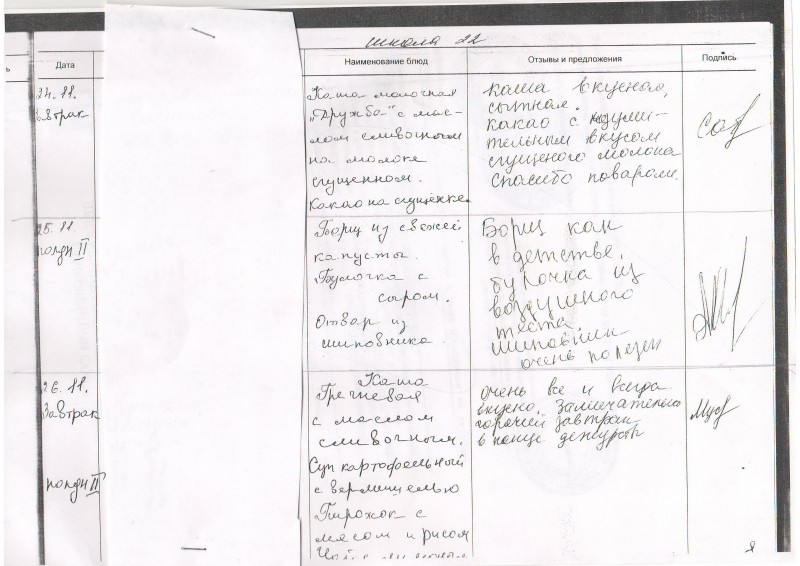 школа 22
Дата
Наименование блюд
Отзывы и предложения
Подпись
24.11.
завтрак
Каша молочная
"Дружба" с мас-
лом сливочным
на молоке
сгущенном.
Какао на сгущенке.
каша вкусная,
сытная.
какао с изуми-
тельным вкусом
сгущеного молока
спасибо поварам.
25.11
полдн II
Борщ из свежей
капусты.
Булочка с
сыром.
Отвар из
шиповника
Борщ как
в детстве,
булочка из
воздушного
теста
шиповник
очень полезен
26.11.
Завтрак
Каша
Гречневая
с маслом
сливочным.
очень все и всегда
вкусно. Замечательно
горячей завтрак
в конце
полдн II
Суп картофельный
с вермишелью
Пирожок с
мясом и рисом
Чай с